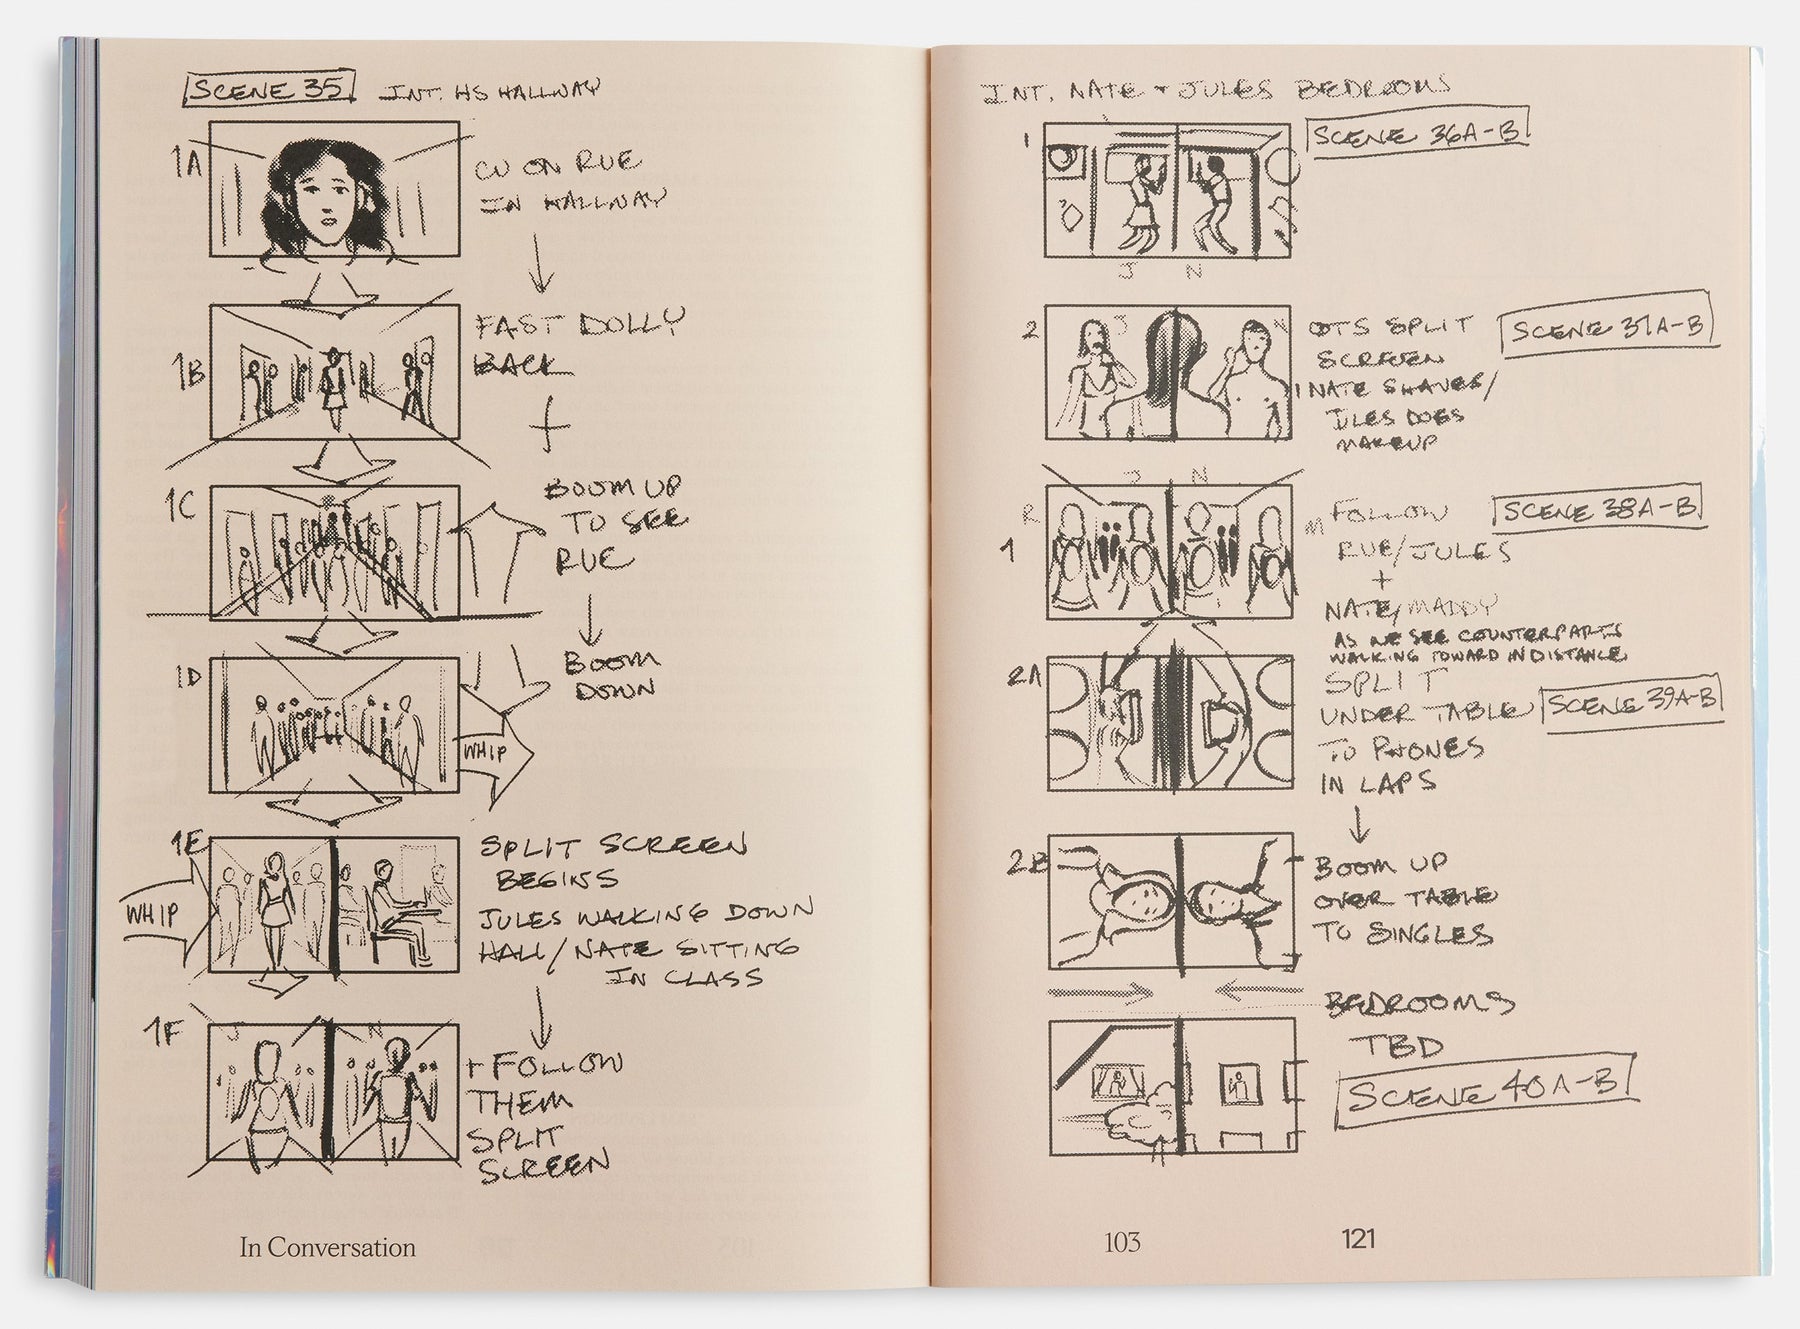 SCENE 35 INT. HS HALLWAY
1A
CU ON RUE
IN HALLWAY
1B
FAST DOLLY
BACK
+
1C
BOOM UP
TO SEE
RUE
1D
BOOM
DOWN
WHIP
1E
WHIP
SPLIT SCREEN
BEGINS
JULES WALKING DOWN
HALL/NATE SITTING
IN CLASS
1F
J N
+ FOLLOW
THEM
SPLIT
SCREEN
In Conversation
INT. NATE + JULES BEDROOMS
1
SCENE 36A-B
J N
2
J N
OTS SPLIT
SCREEN
SCENE 37A-B
NATE SHAVES/
JULES DOES
MAKEUP
J N
R M
1
FOLLOW
SCENE 38A-B
RUE/JULES
+
NATE/MADDY
AS WE SEE COUNTERPARTS
WALKING TOWARD IN DISTANCE
2A
SPLIT
UNDER TABLE
SCENE 39A-B
TO PHONES
IN LAPS
2B
BOOM UP
OVER TABLE
TO SINGLES
BEDROOMS
TBD
SCENE 40A-B
103 121